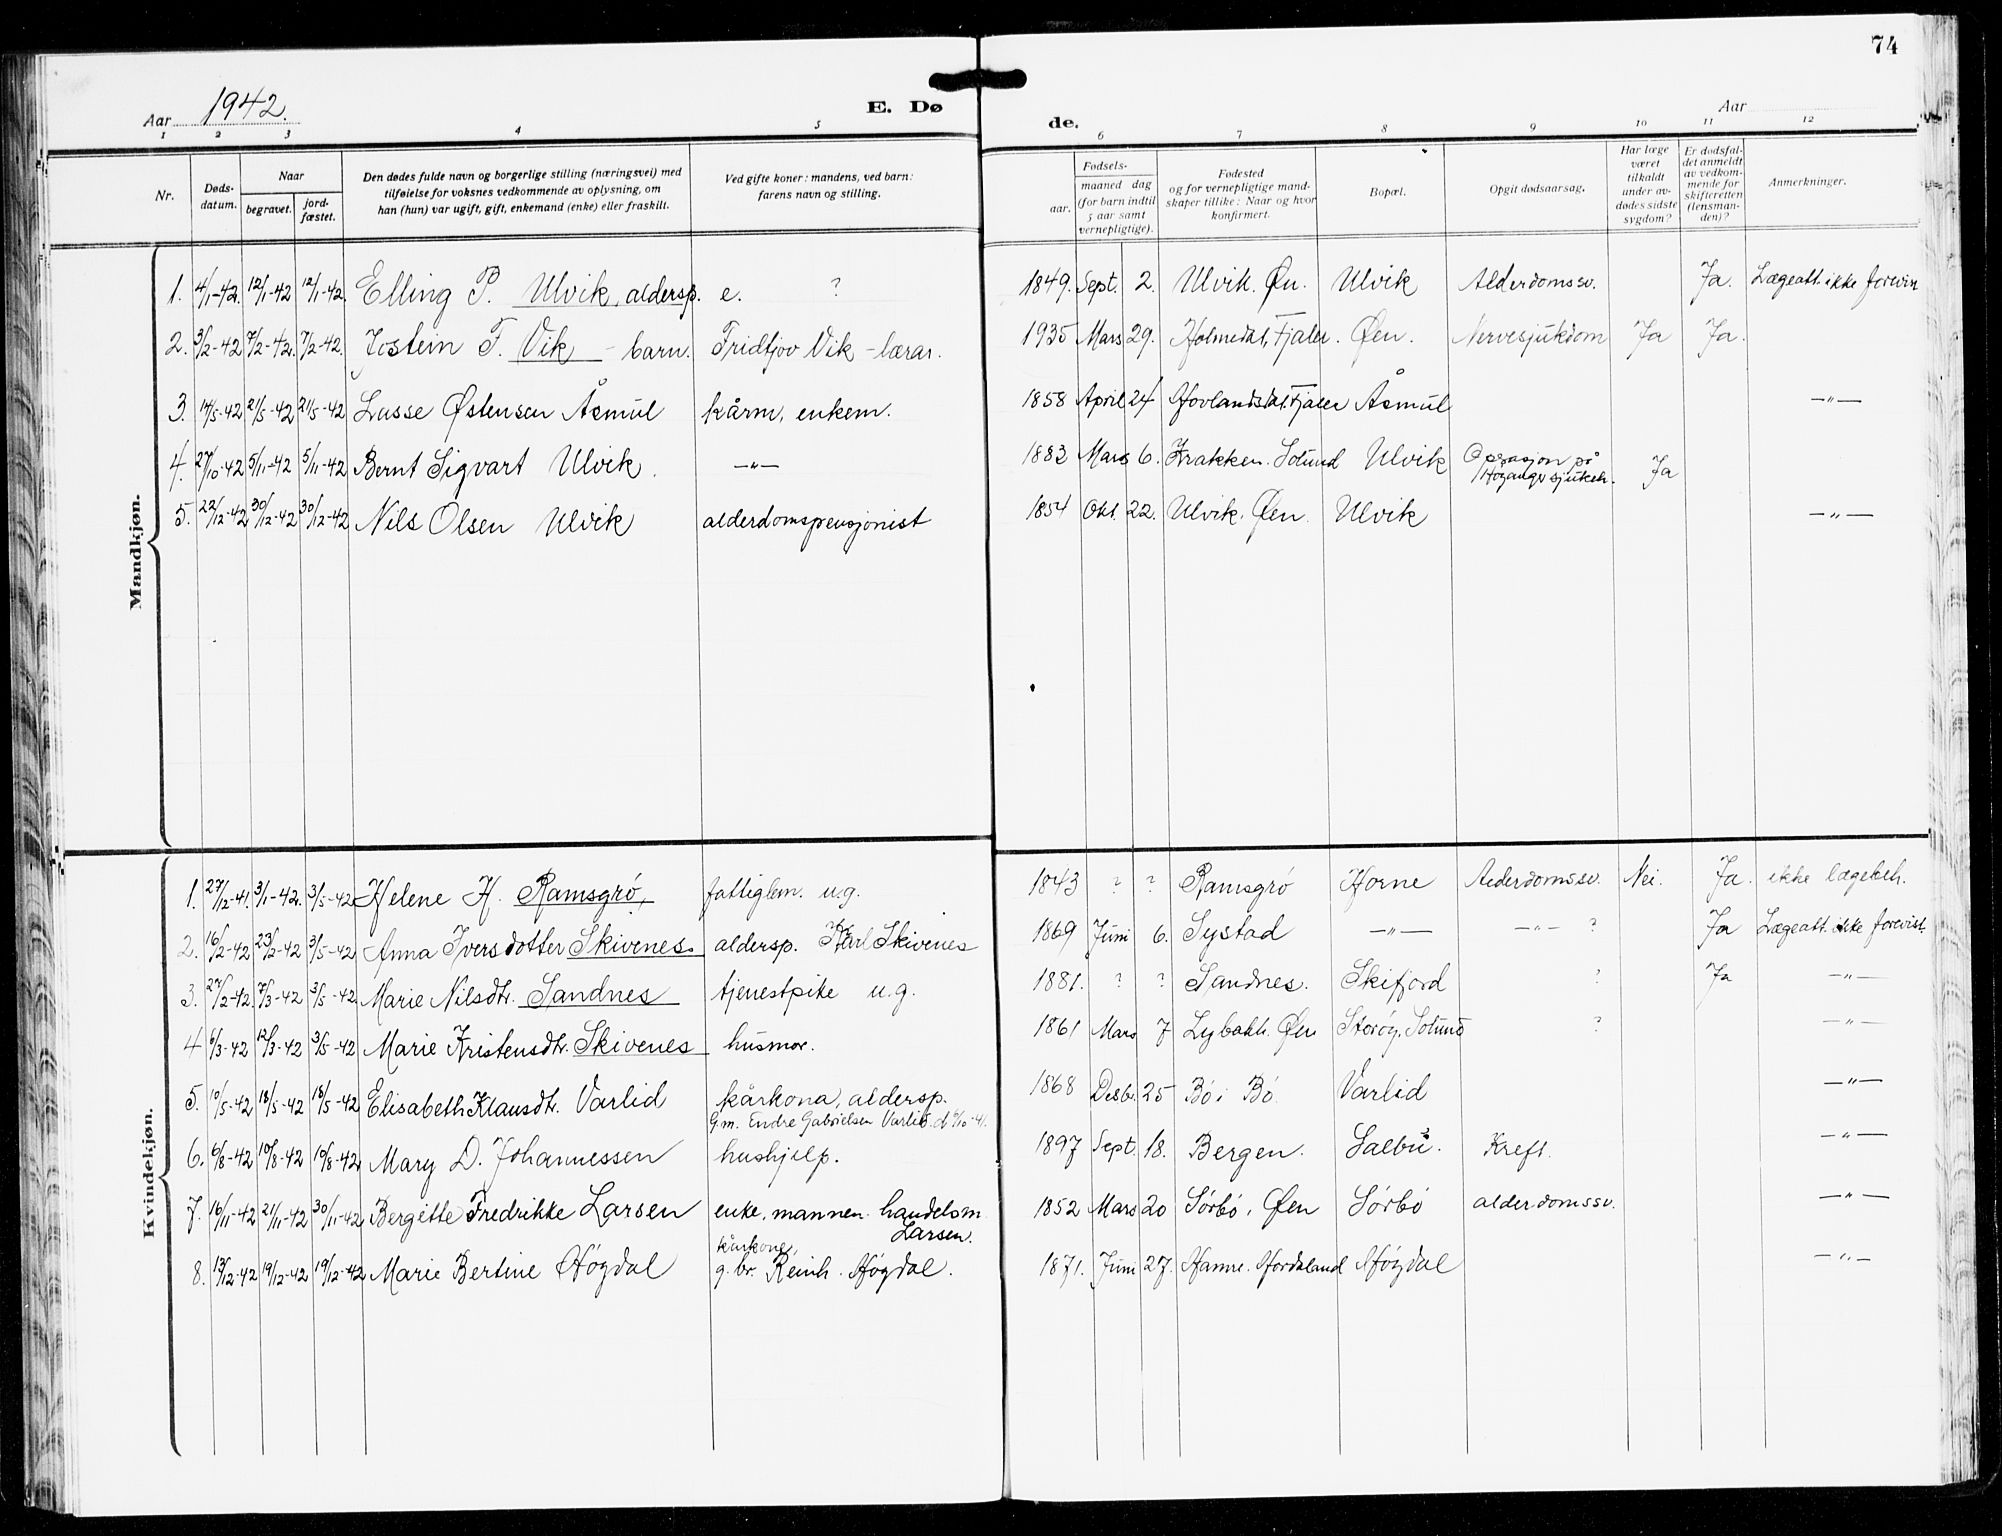 74
Aar 1942. E. Dø de. Aar
1 2 3 4 5 6 7 8 9 10 11 12
Nr. Døds-datum. Naar begravet. jord-fæstet. Den dødes fulde navn og borgerlige stilling (næringsvei) med tilføielse for voksnes vedkommende av oplysning, om han (hun) var ugift, gift, enkemand (enke) eller fraskilt. Ved gifte koner: mandens, ved barn: farens navn og stilling. Fødsels- aar. maaned dag (for barn indtil 5 aar samt vernepligtige). Fødested og for vernepligtige mand-skaper tillike: Naar og hvor konfirmert. Bopæl. Opgit dødsaarsag. Har læge været tilkaldt under av-dødes sidste sygdom? Er dødsfal-det anmeldt av vedkom-mende for skifteretten (lensman-den)? Anmerkninger.
Mandkjøn.
1. 4/1-42. 12/1-42 12/1-42. Elling P. Ulvik, aldersp. e. ? 1849. Sept. 2. Ulvik. Øn. Ulvik Alderdomssv. Ja. Lægeatt. ikke forevis
2. 3/2-42 7/2-42. 7/2-42. Jostein F. Vik - barn. Fridtjov Vik - lærar. 1935 Mars 29. Holmedal, Fjaler. Øen. Nervesjukdom Ja Ja.
3. 14/5-42 21/5-42 21/5-42 Lasse Østensen Åsmul kårm, enkem. 1858 April 24 Hovlandsdal, Fjaler Åsmul -"-
4. 27/10-42 5/11-42 5/11-42 Bernt Sigvart Ulvik. -"- 1883 Mars 6. Krakken. Solund Ulvik Operasjon på Høyanger sjukeh. Ja
5. 22/12-42 30/12-42 30/12-42 Nils Olsen Ulvik alderdomspensjonist 1854 Okt. 22. Ulvik. Øen. Ulvik -"-
Kvindekjøn.
1. 27/12-41. 3/1-42. 3/5-42 Helene H. Ramsgrø, fattiglem. u.g. 1843 ? ? Ramsgrø Horne Alderdomssv. Nei. Ja. ikke lægebeh.
2. 16/2-42 23/2-42 3/5-42 Anna Iversdotter Skivenes aldersp. Karl Skivenes 1869 Juni 6. Systad -"- -"- ? Ja Lægeatt. ikke forevist.
3. 27/2-42. 7/3-42 3/5-42 Marie Nilsdtr. Sandnes tjenestpike u.g. 1881. ? ? Sandnes. Skifjord ? Ja -"-
4 6/3-42 12/3-42 3/5-42 Marie Kristensdtr. Skivenes husmor. 1861 Mars 7 Lybakk. Øen Storøy, Solund ? -"-
5. 10/5-42 18/5-42 18/5-42 Elisabeth Klausdtr. Varlid kårkona, aldersp. 1868 Desbr. 25 Bø i Bø. Varlid -"-
G.m. Endre Gabrielsen Varlid. d. 6/10-41.
6. 6/8-42 10/8-42 10/8-42. Mary D. Johannessen hushjelp. 1897 Sept. 18. Bergen. Salbu. Kreft. -"-
7. 16/11-42 21/11-42 30/11-42 Bergitte Fredrikke Larsen enke. mannen handelsm. Larsen. 1852 Mars 20 Sørbø, Øen Sørbø alderdomssv. -"-
8. 13/12-42 19/12-42 19/12-42 Marie Bertine Høgdal kårkone, g. br. Reinh. Høgdal. 1871. Juni 27. Hamre. Hordaland Høgdal -"-